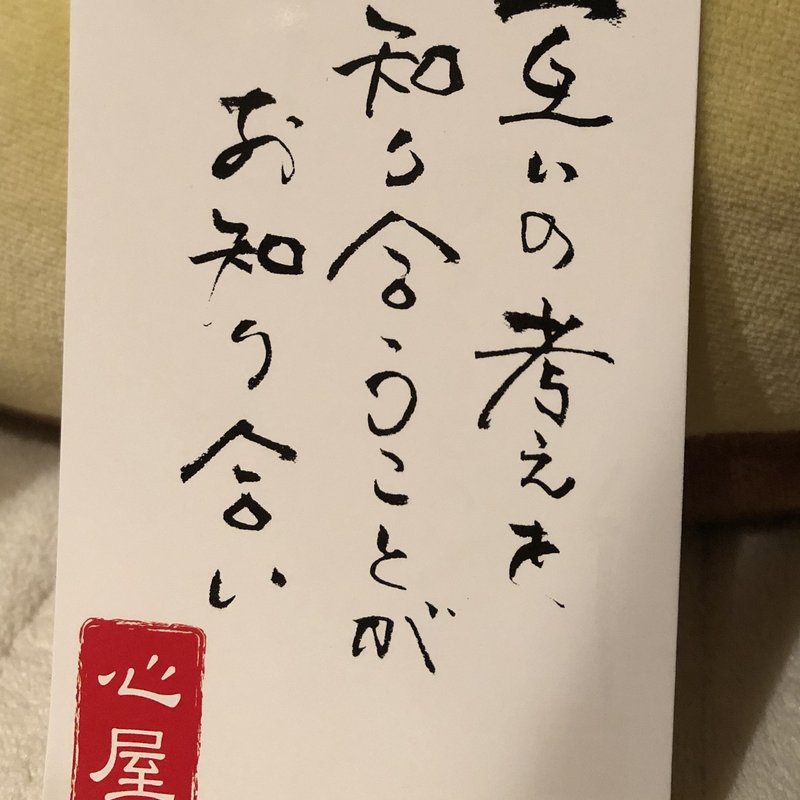 互いの考えを、
知り合うことが
お知り合い
心屋